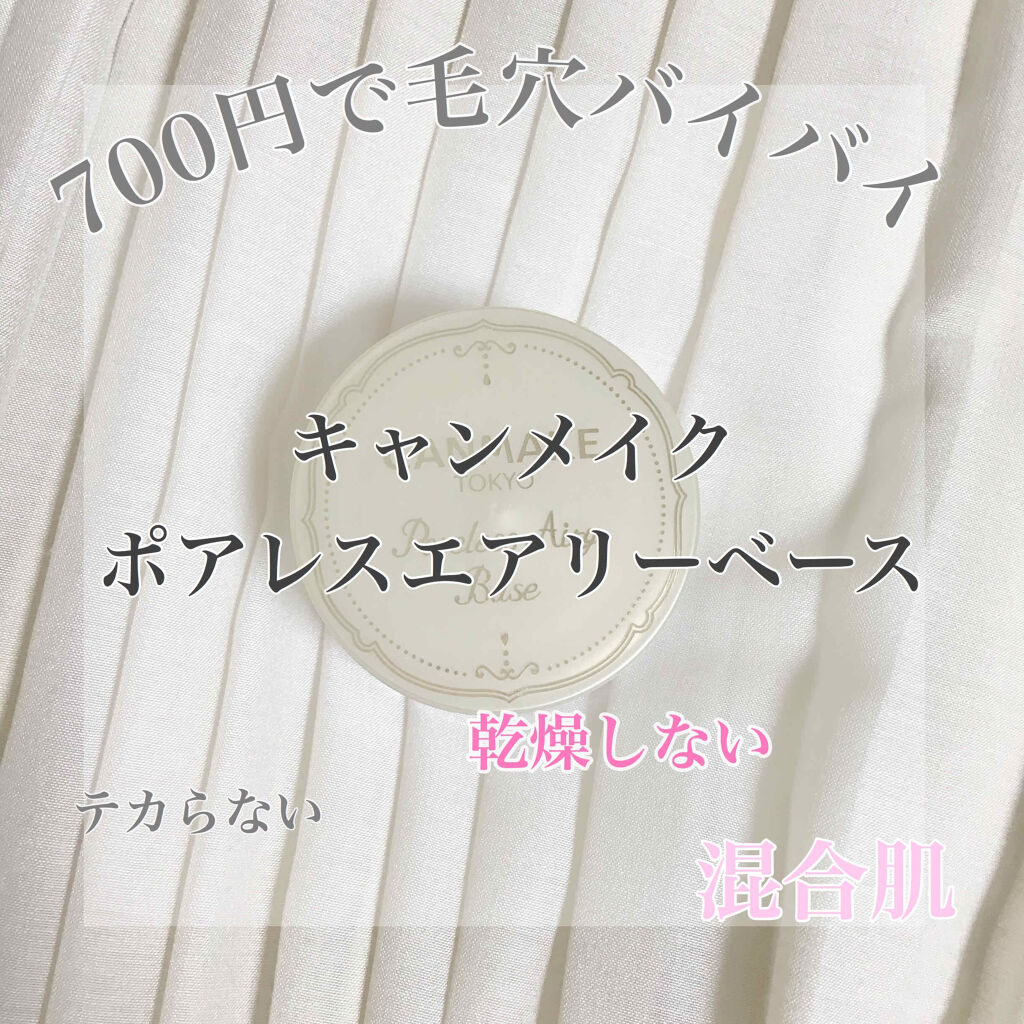 700円で毛穴バイバイ
CANMAKE
キャンメイク
TOKYO
ポアレスエアリーベース
Base
乾燥しない
テカらない
混合肌